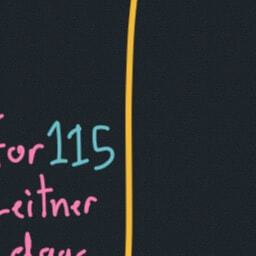 for 115
Leitner